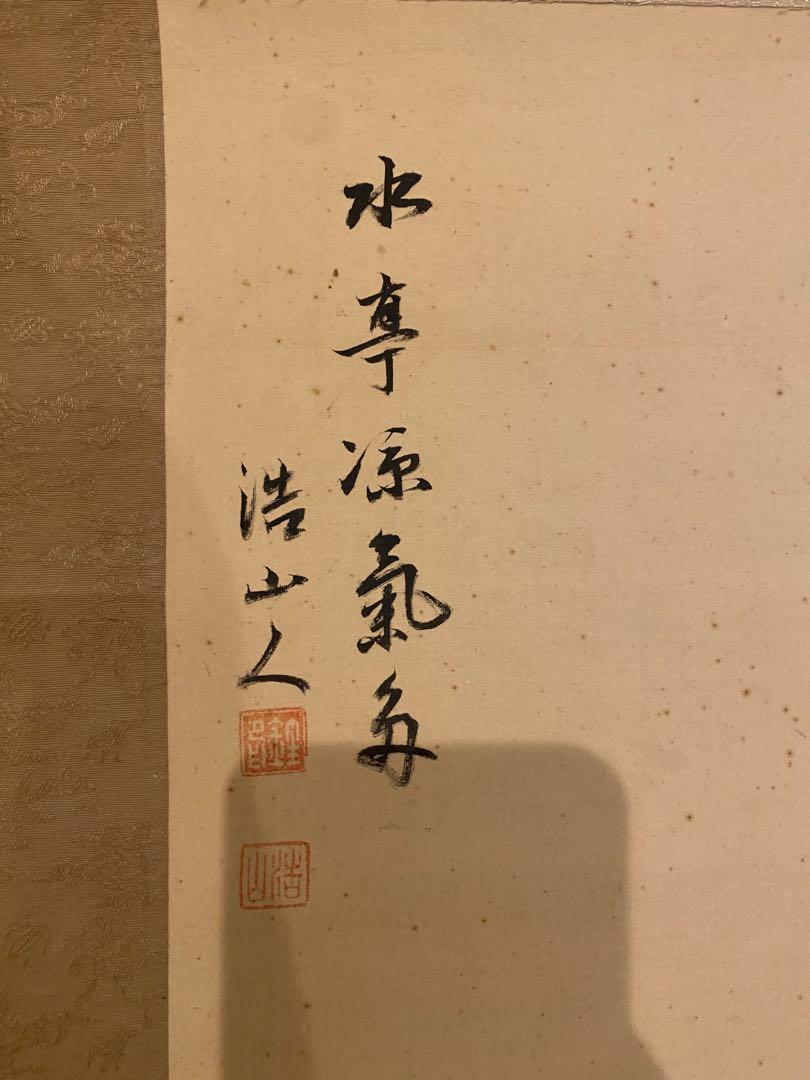 水亭凉氣多
浩山人
浩山